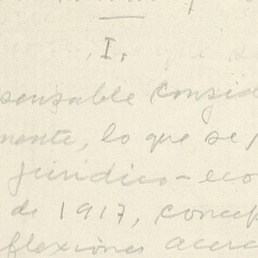 I.
sponsable consid
mente, lo que se
jurídico-eco
de 1917, concep
flexiones acerc